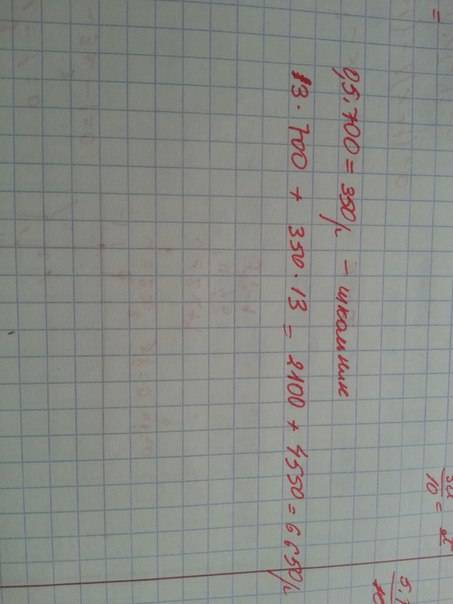 0,5·700 = 350р. – школьник
3·700 + 350·13 = 2100 + 4550 = 6650р.
=
10 =
5,